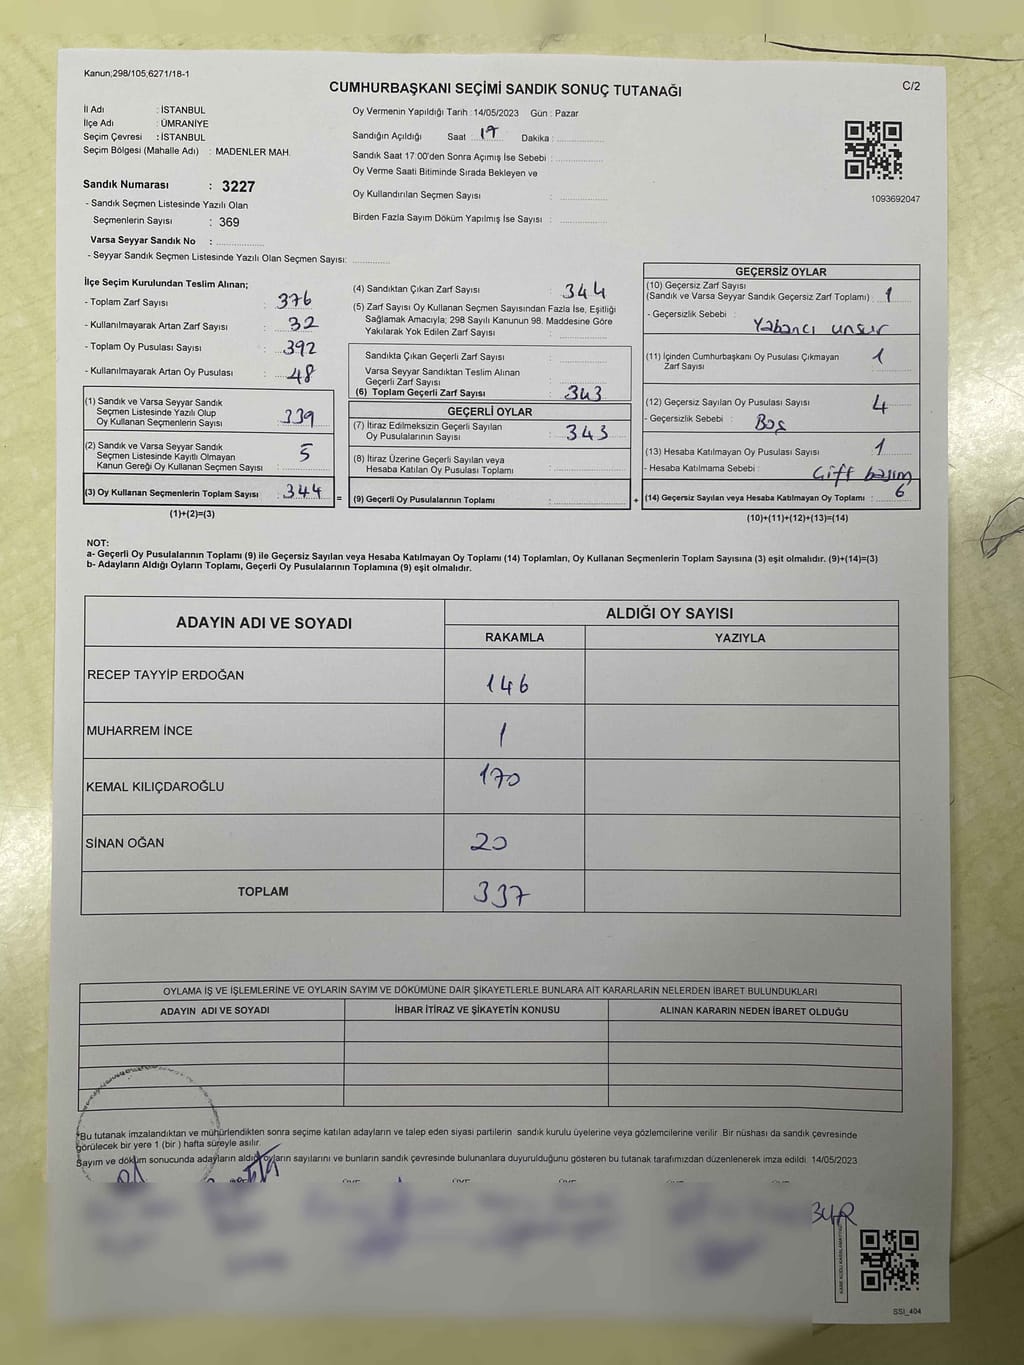 Kanun;298/105,6271/18-1
CUMHURBAŞKANI SEÇİMİ SANDIK SONUÇ TUTANAĞI
C/2
İl Adı : İSTANBUL
İlçe Adı : ÜMRANİYE
Seçim Çevresi : İSTANBUL
Seçim Bölgesi (Mahalle Adı) : MADENLER MAH.
Sandık Numarası : 3227
- Sandık Seçmen Listesinde Yazılı Olan
Seçmenlerin Sayısı : 369
Varsa Seyyar Sandık No :
- Seyyar Sandık Seçmen Listesinde Yazılı Olan Seçmen Sayısı:
Oy Vermenin Yapıldığı Tarih : 14/05/2023 Gün : Pazar
Sandığın Açıldığı Saat 17 Dakika :
Sandık Saat 17:00'den Sonra Açımış İse Sebebi :
Oy Verme Saati Bitiminde Sırada Bekleyen ve
Oy Kullandırılan Seçmen Sayısı :
Birden Fazla Sayım Döküm Yapılmış İse Sayısı :
1093692047
İlçe Seçim Kurulundan Teslim Alınan;
- Toplam Zarf Sayısı : 376
- Kullanılmayarak Artan Zarf Sayısı : 32
- Toplam Oy Pusulası Sayısı : 392
- Kullanılmayarak Artan Oy Pusulası : 48
(1) Sandık ve Varsa Seyyar Sandık
Seçmen Listesinde Yazılı Olup
Oy Kullanan Seçmenlerin Sayısı : 339
(2) Sandık ve Varsa Seyyar Sandık
Seçmen Listesinde Kayıtlı Olmayan
Kanun Gereği Oy Kullanan Seçmen Sayısı : 5
(3) Oy Kullanan Seçmenlerin Toplam Sayısı : 344
(1)+(2)=(3)
=
(4) Sandıktan Çıkan Zarf Sayısı : 344
(5) Zarf Sayısı Oy Kullanan Seçmen Sayısından Fazla İse, Eşitliği
Sağlamak Amacıyla; 298 Sayılı Kanunun 98. Maddesine Göre
Yakılarak Yok Edilen Zarf Sayısı :
Sandıkta Çıkan Geçerli Zarf Sayısı :
Varsa Seyyar Sandıktan Teslim Alınan
Geçerli Zarf Sayısı :
(6) Toplam Geçerli Zarf Sayısı : 343
GEÇERLİ OYLAR
(7) İtiraz Edilmeksizin Geçerli Sayılan
Oy Pusulalarının Sayısı : 343
(8) İtiraz Üzerine Geçerli Sayılan veya
Hesaba Katılan Oy Pusulası Toplamı :
(9) Geçerli Oy Pusulalarının Toplamı :
+
GEÇERSİZ OYLAR
(10) Geçersiz Zarf Sayısı
(Sandık ve Varsa Seyyar Sandık Geçersiz Zarf Toplamı) : 1
- Geçersizlik Sebebi :
Yabancı unsur
(11) İçinden Cumhurbaşkanı Oy Pusulası Çıkmayan
Zarf Sayısı : 1
(12) Geçersiz Sayılan Oy Pusulası Sayısı : 4
- Geçersizlik Sebebi : Boş
(13) Hesaba Katılmayan Oy Pusulası Sayısı : 1
- Hesaba Katılmama Sebebi : Çift basım
(14) Geçersiz Sayılan veya Hesaba Katılmayan Oy Toplamı : 6
(10)+(11)+(12)+(13)=(14)
NOT:
a- Geçerli Oy Pusulalarının Toplamı (9) ile Geçersiz Sayılan veya Hesaba Katılmayan Oy Toplamı (14) Toplamları, Oy Kullanan Seçmenlerin Toplam Sayısına (3) eşit olmalıdır. (9)+(14)=(3)
b- Adayların Aldığı Oyların Toplamı, Geçerli Oy Pusulalarının Toplamına (9) eşit olmalıdır.
ADAYIN ADI VE SOYADI
ALDIĞI OY SAYISI
RAKAMLA YAZIYLA
RECEP TAYYİP ERDOĞAN 146
MUHARREM İNCE 1
KEMAL KILIÇDAROĞLU 170
SİNAN OĞAN 20
TOPLAM 337
OYLAMA İŞ VE İŞLEMLERİNE VE OYLARIN SAYIM VE DÖKÜMÜNE DAİR ŞİKAYETLERLE BUNLARA AİT KARARLARIN NELERDEN İBARET BULUNDUKLARI
ADAYIN ADI VE SOYADI İHBAR İTİRAZ VE ŞİKAYETİN KONUSU ALINAN KARARIN NEDEN İBARET OLDUĞU
*Bu tutanak imzalandıktan ve mühürlendikten sonra seçime katılan adayların ve talep eden siyasi partilerin sandık kurulu üyelerine veya gözlemcilerine verilir. Bir nüshası da sandık çevresinde
görülecek bir yere 1 (bir ) hafta süreyle asılır.
Sayım ve döküm sonucunda adayların aldığı oyların sayılarını ve bunların sandık çevresinde bulunanlara duyurulduğunu gösteren bu tutanak tarafımızdan düzenlenerek imza edildi. 14/05/2023
SSI_404